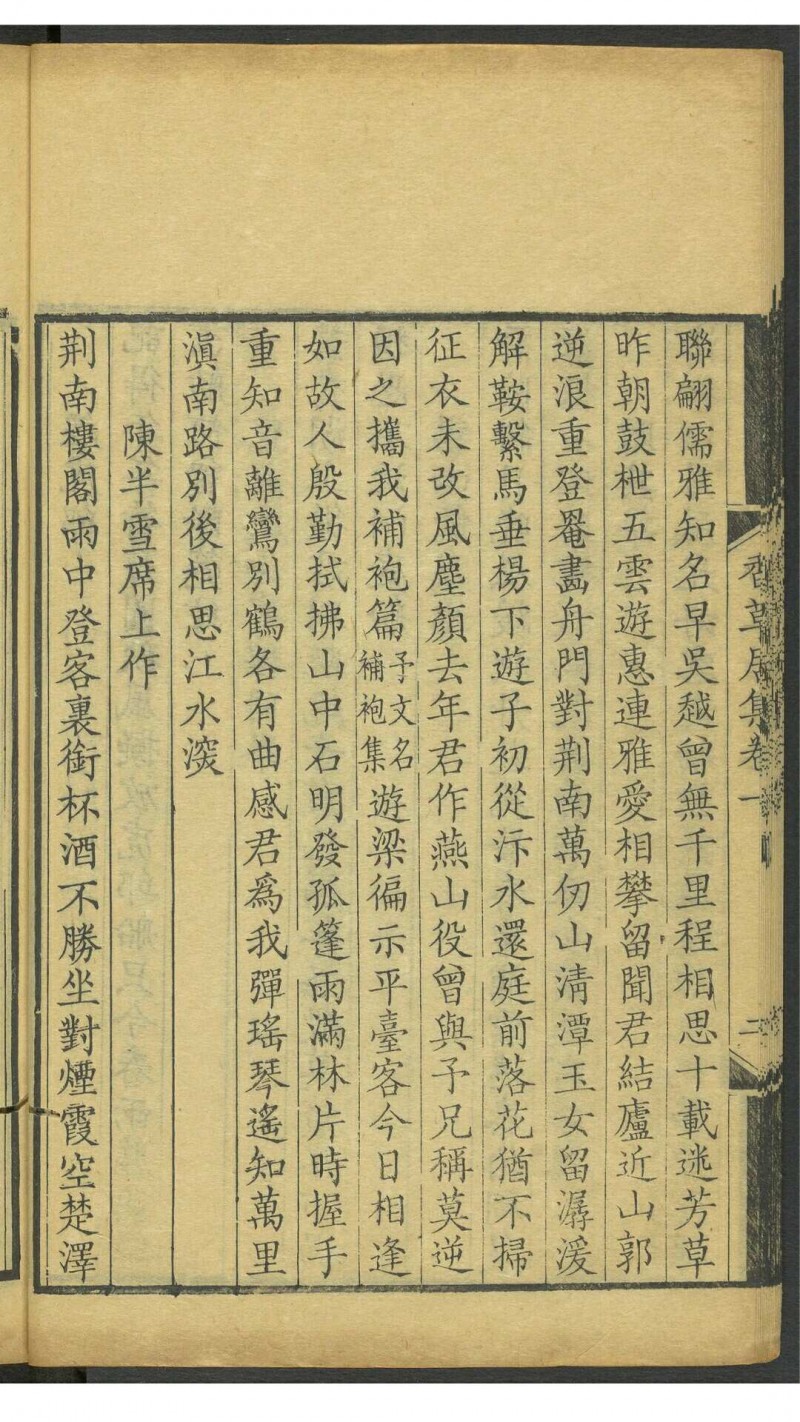 香草居集卷一
二
聯翩儒雅知名早吳越曾無千里程相思十載迷芳草
昨朝鼓枻五雲遊惠連雅愛相攀留聞君結廬近山郭
逆浪重登罨畫舟門對荆南萬仞山清潭玉女留潺湲
解鞍繫馬垂楊下遊子初從汴水還庭前落花猶不掃
征衣未改風塵顏去年君作燕山役曾與予兄稱莫逆
因之攜我補袍篇予文名補袍集遊梁徧示平臺客今日相逢
如故人殷勤拭拂山中石明發孤篷雨滿林片時握手
重知音離鸞別鶴各有曲感君爲我彈瑤琴遙知萬里
滇南路別後相思江水深
陳半雪席上作
荆南樓閣雨中登客裏銜杯酒不勝坐對煙霞空楚澤